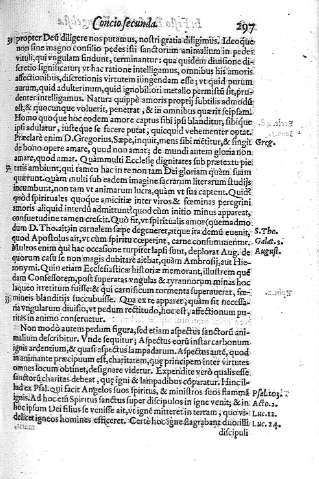 Concio secunda. 297
propter Deū diligere nos putamus, nostri gratia diligimus. Ideoque
non sine magno consilio pedes isti sanctorum animalium in pedes
vituli, qui vngulam findunt, terminantur: qua quidem diuisione di-
scretio significatur: vt hac ratione intelligamus, omnibus his amoris
affectionibus, discretionis virtutem iungendam esse; vt quid purum
aurum, quid adulterinum, quid ignobiliori metallo permistū sit, pru-
denter intelligamus. Natura quippe amoris proprij subtilis admodū
est, & quocunque voluerit, penetrat, & in omnibus quærit seipsum.
Homo quoque hoc eodem amore captus sibi ipsi blanditur, sibique
ipsi adulatur, iusteque se facere putat, quicquid vehementer optat.
Præclarè enim D. Gregorius, Sæpe, inquit, mens sibi mētitur, & fingit Greg.
de bono opere amare, quod non amat: de mundi autem gloria non
amare, quod amat. Quàm multi Ecclesiæ dignitates sub prætextu pie
tatis ambiunt, qui tamen hac in re non tam Dei gloriam quàm suam
quærunt. quàm multi sub eadem imagine sacrarum literarum studijs
incumbunt, non tam vt animarum lucra, quàm vt sua captent. Quid
quòd spirituales quoque amicitiæ inter viros & fœminas peregrini
amoris aliquid interdū admittunt? quod cùm initio minus appareat,
consuetudine tamen crescit. Quò fit, vt spiritualis amor (quemadmo
dum D. Thoait) in carnalem sæpe degeneret, atque ita demū eueniat, S. Tho.
quod Apostolus ait, vt cùm spiritu cœperint, carne consummentur. Galat. 3.
Multos enim qui hac occasione turpiter lapsi sunt, deplorat Aug. de August.
quorum casu se non magis dubitare aiebat, quàm Ambrosij, aut Hie-
ronymi. Quin etiam Ecclesiasticæ historiæ memorant, illustrem quē
dam Confessorem, post superatas vngulas & tyrannorum minas hoc
laqueo irretitum fuisse: & qui carnificum tormenta superauerat, fœ-
mineis blanditijs succubuisse. Qua ex re apparet, quàm sit necessa-
ria vngularum diuisio, vt pedum rectitudo, hoc est, affectionum pu-
ritas in animo conseruetur.
Non modò autem pedum figura, sed etiam aspectus sanctorū ani-
malium describitur. Vnde sequitur; Aspectus eorū instar carbonum
ignis ardentium, & quasi aspectus lampadarum. Aspectus sanè, quod
in animante præcipuum est, charitatem, quæ principem inter virtutes
omnes locum obtinet, designare videtur. Expendite verò qualis esse
sanctorū charitas debeat, quę igni & lampadibus cōparatur. Hinc il-
lud ex Psal. qui facit Angelos suos spiritus, & ministros suos flammā Psal. 103.
ignis. Ad hoc em̄ Spiritus sanctus super discipulos in igne venit; & in Acto. 2.
hoc ipsum Dei filius se venisse ait, vt ignē mitteret in terram, quo vi- Luc. 12.
delicet igneos homines efficeret. Certè hoc igne flagrabant duo illi Luc. 24.
discipuli